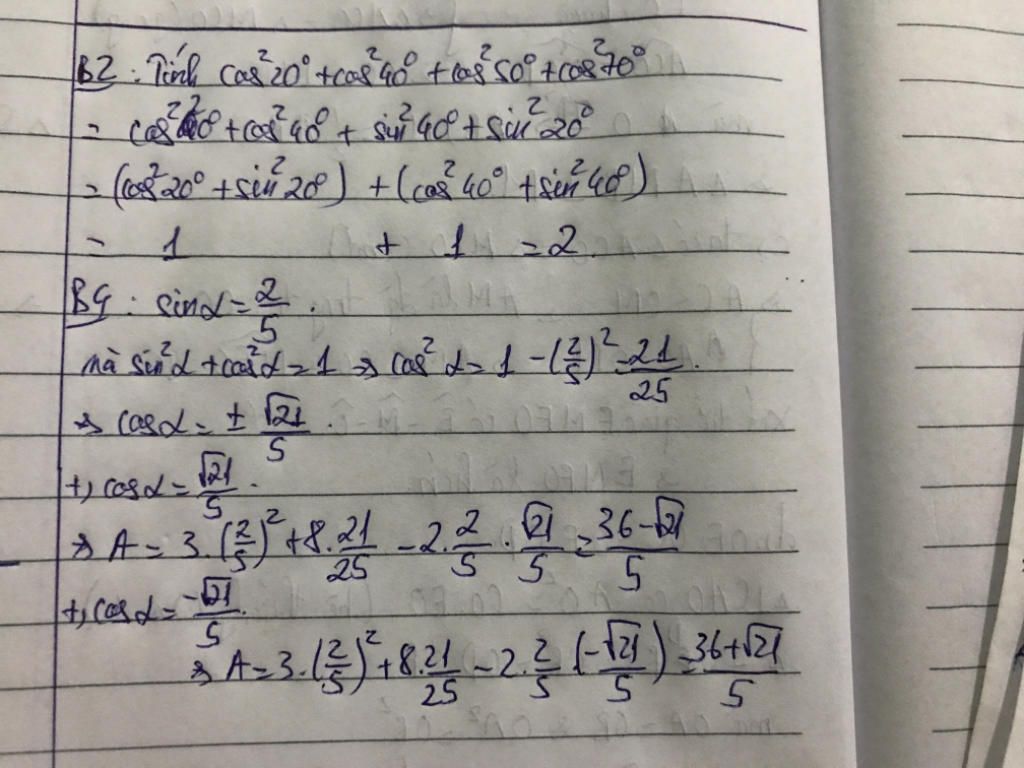 B2 : Tính cos²20° + cos²40° + cos²50° + cos²70°
= cos²20° + cos²40° + sin²40° + sin²20°
= (cos²20° + sin²20°) + (cos²40° + sin²40°)
= 1 + 1 = 2.
B4 : sinα = 2/5.
mà sin²α + cos²α = 1 => cos²α = 1 - (2/5)² = 21/25.
=> cosα = ± √21/5.
+, cosα = √21/5.
=> A = 3.(2/5)² + 8.21/25 - 2.2/5.√21/5 = 36-√21/5
+, cosα = -√21/5.
=> A = 3.(2/5)² + 8.21/25 - 2.2/5.(-√21/5) = 36+√21/5